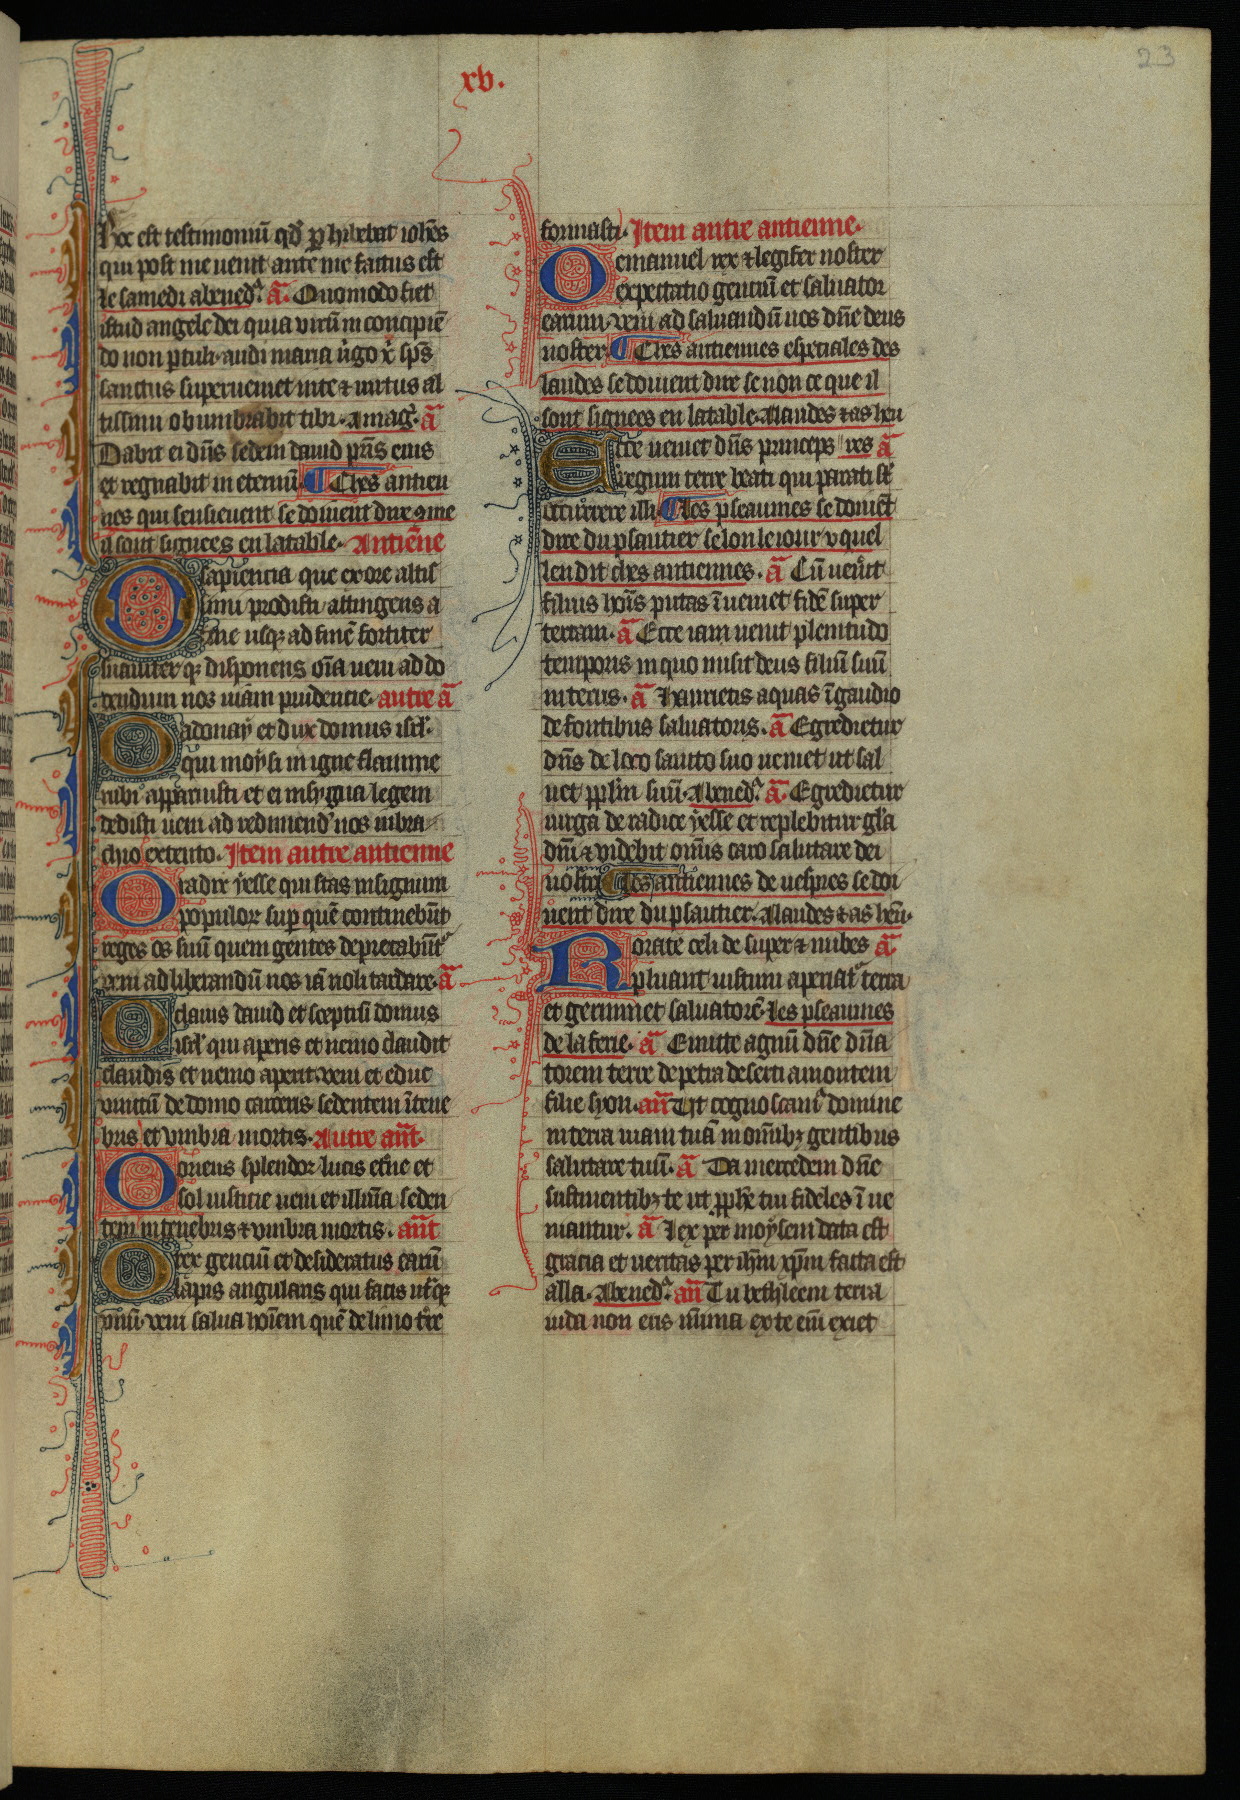 23
xv.
Hoc est testimoniū qđ ꝑhibebat ioħes
qui post me uenit ante me factus est
le samedi abened̾. ā. Quomodo fiet
istud angele dei quia virū in concipiē
do non ꝑtuli. audi maria ỏgo x̓ sp̄s
sanctus superueniet in te ⁊ uirtus al
tissimi obumbrabit tibi. A mag̾. ā
Dabit ei dn̄s sedem dauid pr̄is eius
et regnabit in eternū. ¶ Ces antien
nes qui sensieuent se doiuent dire 9me
il sont signees en latable. Antiēne
O sapiencia que ex ore altis
simi prodisti attingens a
fine usqꝫ ad finē fortiter
suauiter qꝫ disponens oīa ueni ad do
cendum nos uiam prudencie. autre ā
O adonaÿ et dux domus isrl̓.
qui moÿsi in igne flamme
rubi apparuisti et ei in sÿgna legem
dedisti ueni ad redimend̓ nos in bra
chio extento. Item autre antienne
O radix ÿesse qui stas in signum
populoꝝ suꝑ quē continebūt
reges os suū quem gentes deprecabūt̾
veni ad liberandū nos iā noli tardare. ā
O clauis dauid et sceptrū domus
isrl̓ qui aperis et nemo claudit
claudis et nemo aperit. veni et educ
vinctū de domo carceris sedentem ī tene
bris et vmbra mortis. Autre ant̄.
O oriens splendor lucis et̓ne et
sol iusticie ueni et illuīa seden
tem in tenebris ⁊ vmbra mortis. ant̄
O rex genciū et desideratus earū
lapis angularis qui facis ut̓qꝫ
vnū. veni salua hoīem quē de limo t̓re
formasti. Item autre antienne.
O emanuel rex ⁊ legifer noster
expectatio genciū et saluator
earum. veni ad saluandū nos dn̄e deus
noster. ¶ Ces antiennes especiales des
laudes se doiuent dire se non ce que il
sont signees en latable. A laudes ⁊ as heu
Ecce ueniet dn̄s princeps res ā
regum terre beati qui parati sē
occurrere illi. ¶ les pseaumes se doiuēt
dire du psautier selon le iour v quel
len dit ches antiennes. ā Cū uen̓it
filius hoīs putas īueniet fidē super
terram. ā Ecce iam uenit plenitudo
temporis in quo misit deus filiū suū
in terris. ā Haurietis aquas ī gaudio
de fontibus saluatoris. ā Egredietur
dn̄s de loco sancto suo ueniet ut sal
uet ppl̄m suū. Abened̾. ā. Egredietur
uirga de radice ÿesse et replebitur gl̄a
dn̄i ⁊ videbit omīs caro salutare dei
nostri ¶ Les antiennes de uespres se doi
uent dire du psautier. A laudes ⁊ as heu.
Rorate celi de super ⁊ nubes ā
pluant iustum aperiat̾ terra
et germinet saluatorē. Les pseaumes
de la ferie. ā Emitte agnū dn̄e dn̄a
torem terre de petra deserti a montem
filie sÿon. an̄ Ut cognoscam̾ domine
in terra uiam tuā in omībꝫ gentibus
salutare tuū. ā Da mercedem dn̄e
sustinentibꝫ te ut ꝓph̄e tui fideles ī ue
niantur. ā Lex per moÿsem data est
gracia et ueritas per ih̄m xp̄m facta est
alla. Abened̾. an̄ Tu bethleem terra
iuda non eris mīma ex te enī exiet